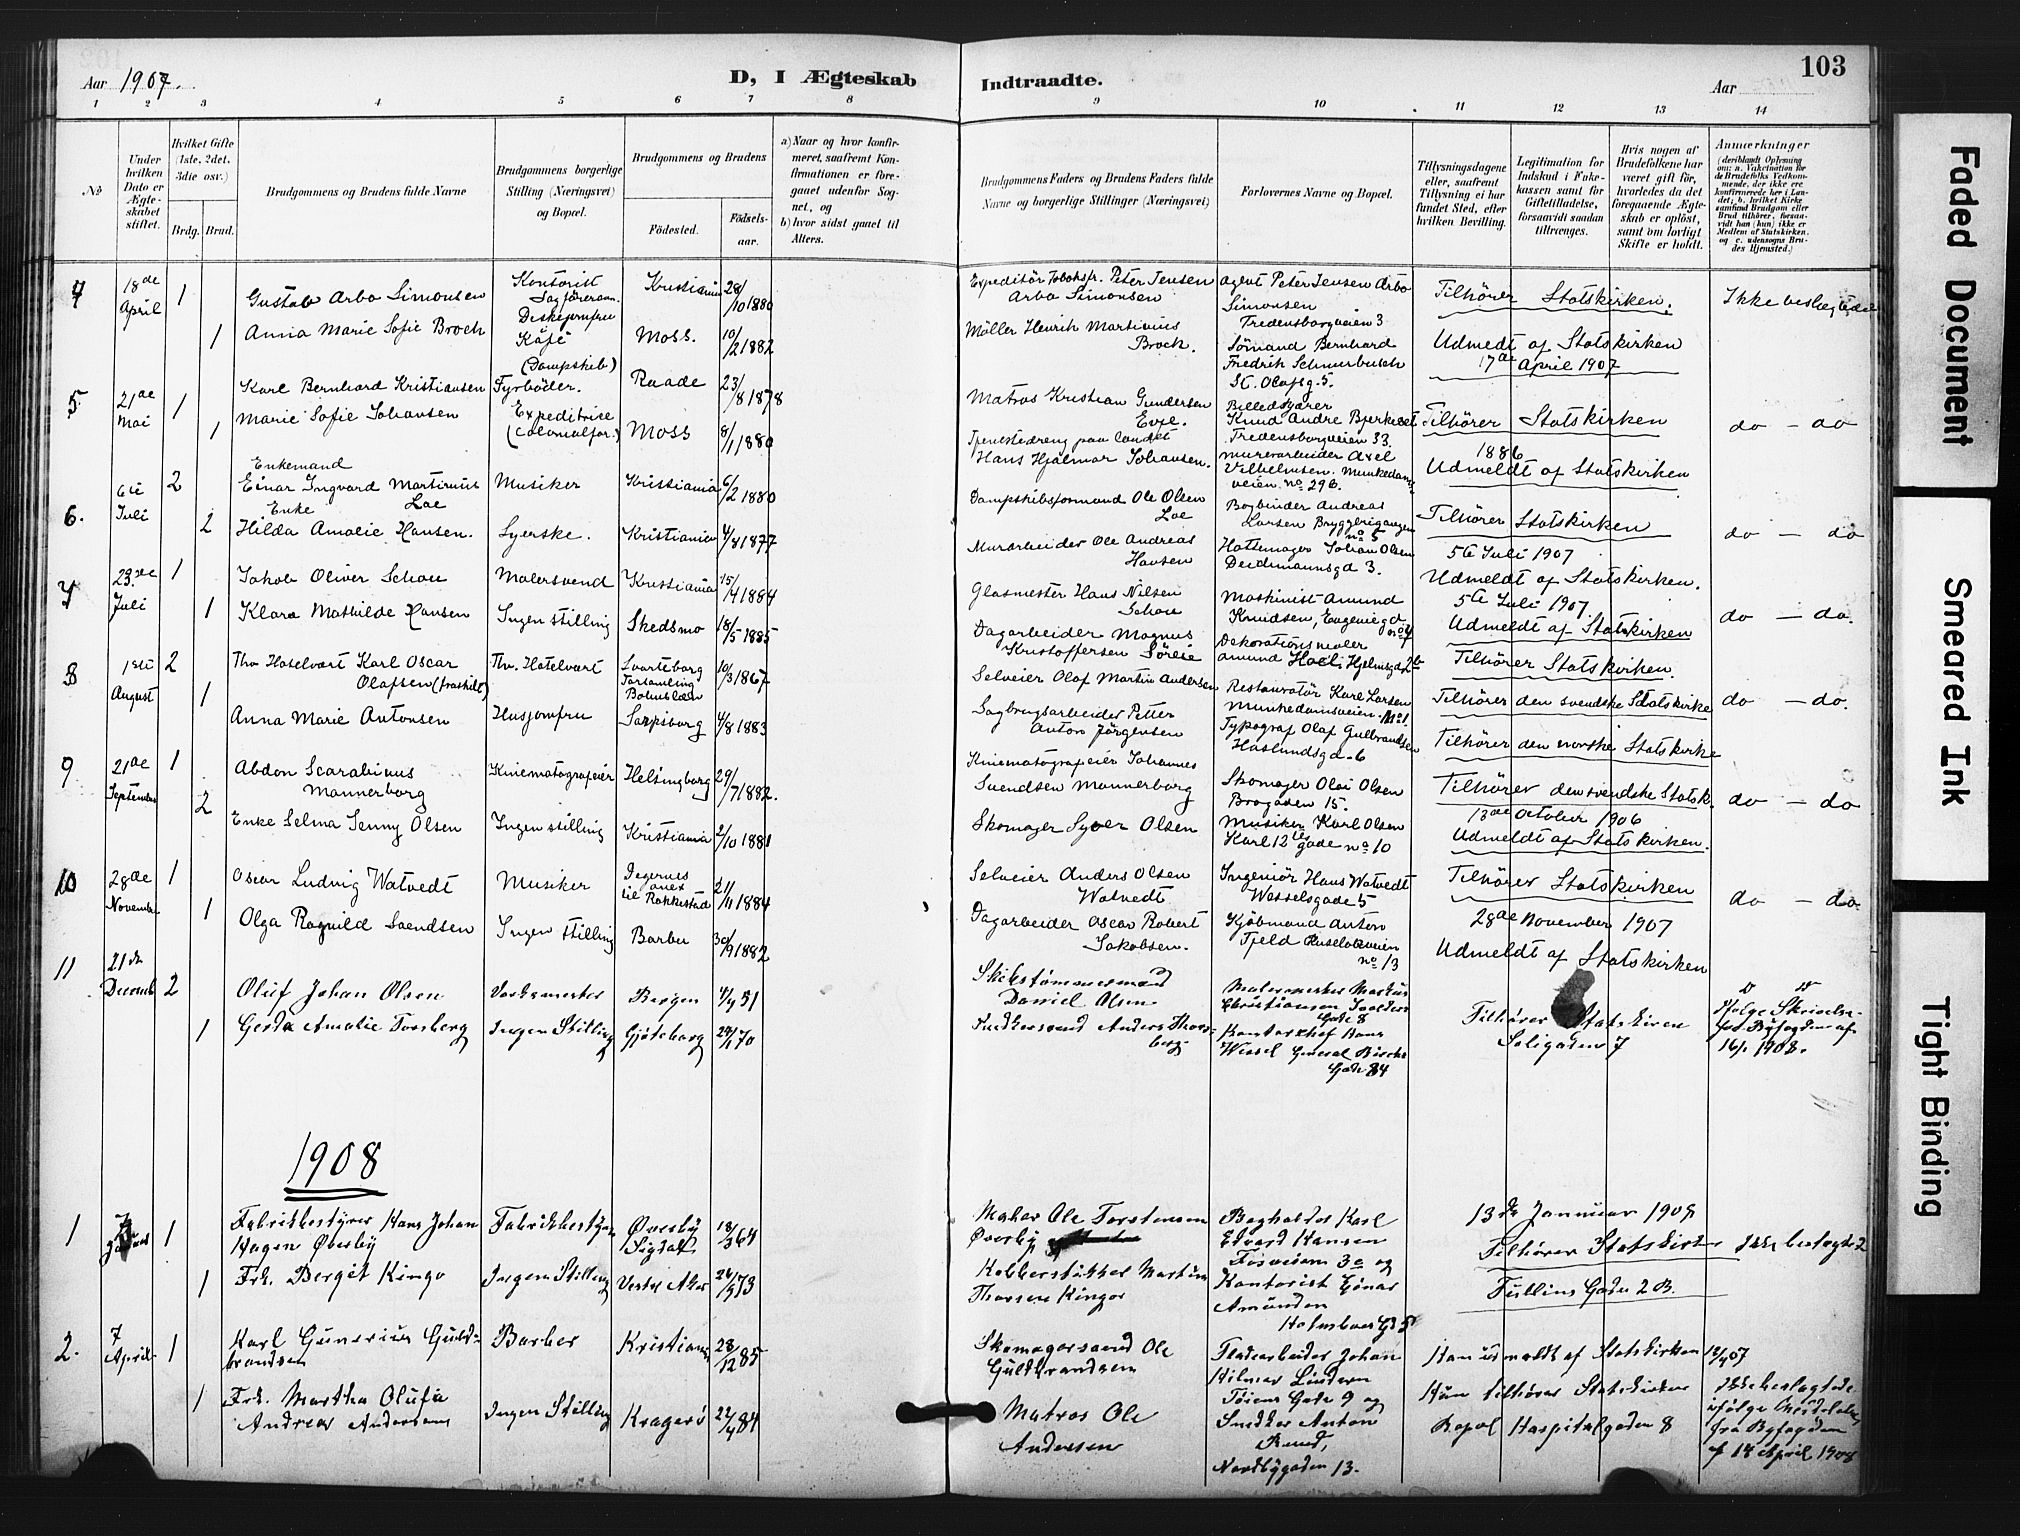 103
Aar 1907.
D, I Ægteskab
Indtraadte.
Aar
1 2 3 4 5 6 7 8 9 10 11 12 13 14
No
Under hvilken Dato er Ægteskabet stiftet.
Hvilket Gifte (1ste, 2det, 3die osv.)
Brdg. Brud.
Brudgommens og Brudens fulde Navne
Brudgommens borgerlige Stilling (Næringsvei) og Bopæl.
Brudgommens og Brudens
Fødested.
Fødselsaar.
a) Naar og hvor konfirmeret, saafremt Konfirmationen er foregaaet udenfor Sognet, og
b) hvor sidst gaaet til Alters.
Brudgommens Faders og Brudens Faders fulde Navne og borgerlige Stillinger (Næringsvei)
Forlovernes Navne og Bopæl.
Tillysningsdagene eller, saafremt Tillysning ei har fundet Sted, efter hvilken Bevilling.
Legitimation for Indskud i Enkekassen samt for Giftetilladelse, forsaavidt saadan tiltrænges.
Hvis nogen af Brudefolkene har været gift før, hvorledes da det foregaaende Ægteskab er opløst, samt om lovligt Skifte er holdt.
Anmærkninger
(deriblandt Oplysning om: a. Vaksination for de Brudefolks Vedkommende, der ikke ere konfirmerede her i Landet; b. hvilket Kirkesamfund Brudgom eller Brud tilhører, forsaavidt han (hun) ikke er Medlem af Statskirken, og c. udensogns Brudes Hjemsted.)
18de April 1
Gustav Arbo Simonsen
Kontorist
Kristiania 28/10 1880
Expeditör Tobaksfr. Peter Jensen
Arbo Simonsen
Agent Peter Jensen Arbo
Simonsen
Fredensborgveien 3
Tilhører Statskirken.
Ikke beslægtede
1 Anna Marie Sofie Broch
Diskejomfru
Kafé
Moss. 10/2 1882
Møller Henrik Martinius
Broch.
Sømand Bernhard
Fredrik
St. Olafsg. 5.
Udmeldt af Statskirken
17de April 1907
5 21de Mai 1
Karl Bernhard Kristiansen
(Dampskib)
Fyrbøder.
Raade 23/8 1878
Matros Kristian Gundersen
Billedskjærer
Knud Andre
Fredensborgveien 33.
Tilhører Statskirken
do — do
1 Marie Sofie Johansen
Expeditrice
(Colonialfor.)
Moss 8/1 1880
Tjenestedreng paa landet
Hans Hjalmar Johansen.
Murerarbeider Axel
Vilhelmsen. Munkedamsveien no 296.
1886
Udmeldt af Statskirken
6. 6te Juli 2
Enkemand
Einar Ingvard Martinius
Loe
Musiker
Kristiania 6/2 1880
Dampskibsformand Ole Olsen
Loe
Bogbinder Andreas
Larsen Bryggerigangen
no 5
Tilhører Statskirken
do — do
2 Enke
Hilda Amalie Hansen.
Syerske.
Kristiania 4/4 1877
Murarbeider Ole Andreas
Hansen
Hattemager Johan Olsen
Deichmannsgd 3.
5te Juli 1907
Udmeldt af Statskirken.
7 23de Juli 1
Jakob Oliver Schou
Malersvend
Kristiania 15/4 1884
Glasmester Hans Nilsen
Schou
Maskinist Amund
Knudsen, Eugeniegd
5te Juli 1907
Udmeldt af Statskirken
do — do.
1 Klara Mathilde Hansen
Ingen stilling
Skedsmo 18/5 1885
Dagarbeider Magnus
Kristoffersen
Dekorationsmaler
Amund
Tilhører Statskirken.
8 1ste August 2
Fhv Hotelvært Karl Oscar
Olafsen (fraskilt)
Fhv. Hotelvært
Svarteborg
Forsamling
Bohuslæn
10/3 1867
Selveier Olaf Martin Andersen
Restauratör Karl Larsen
Munkedamsveien No 1.
Tilhører den svenske Statskirke
do — do.
1 Anna Marie Antonsen
Husjomfru
Sarpsborg 4/8 1883
Sagbrugsarbeider Petter
Anton Jørgensen
Typograf Olaf Gulbrandsen
Haslundsgd. 6
Tilhører den norske Statskirke
9 21de September 1
Abdon Scarabinus
Mannerborg
Kinematografeier
Helsingborg 29/7 1882.
Kinematografeier Johannes
Svendsen Mannerborg
Skomager Olai Olsen
Brogaden 15.
Tilhører den svenske Statsk.
do — do
2 Enke Selma Jenny Olsen
Ingen stilling
Kristiania 2/10 1881
Skomager Syver Olsen
Musiker Karl Olsen
Karl 12tes gade no 10
13de October 1906
Udmeldt af Statskirken.
10 28de November 1
Oscar Ludvig Watvedt
Musiker
Degernes
anex
til Rakkestad
21/11 1884
Selveier Anders Olsen
Watvedt
Ingeniør Hans Watvedt
Wesselsgade 5
Tilhører Statskirken
do — do.
1 Olga Ragnild Svendsen
Ingen stilling
Barbu 30/9 1882
Dagarbeider Oscar Robert
Jakobsen.
Kjøbmand Anton
Fjeld
no 13
28de November 1907
Udmeldt af Statskirken
11 21de Decemb 2
Oluf Johan Olsen
Værksmester
Bergen 4/4 51
Skibstømmermand
Daniel Olsen
Malermester Markus
Christiansen
Gade 8
Tilhører Statskirken
Seligaden 7
Ifølge Skrivelse
fra Byfogden af
16/1 1908.
1 Gerda Amalie Forsberg
Ingen Stilling
Gjøteborg 24/1 70
Snedkersvend Anders Thorsberg
Kontorchef Hans
Wessel General Birchs
Gade 34
1908
1 7 Januar 1
Fabrikbestyrer Hans Johan
Hagen Øverby
Fabrikbestyrer
Øverby
Sigdal
18/3 64
Maler Ole Torstensen
Øverby
Bogholder Karl
Edvard Hansen
Fossveien 3c og
13de Januar 1908
Tilhører Statskirken
Ikke beslægtet
1 Frk. Bergit Kingo
Ingen Stilling
Vestre Aker 26/9 73
Kobberstikker Martin
Thorsen Kingo
Kontorist Einar
Amunden
Holmboes Gd 5
Tullins Gade 2 B.
2. 7 April 1
Karl Gunerius Guldbrandsen
Barber
Kristiania 28/12 85
Skomagersvend Ole
Guldbrandsen
Fladearbeider Johan
Hilmar Lindern
Tøiens Gade 9 og
Han udmeldt af Statskirken 12/4 07
1 Frk. Martha Olufa
Andrea Andersen
Ingen Stilling
Kragerø 22/4 84
Matros Ole
Andersen
Snedker Anton
Ruud,
Nordbygaden 13.
Hun tilhører Statskirken
Bopæl Hospitalgaden 8
Ikke beslægtede
ifølge Meddelelse
fra Byfogden
af 14 April 1908
Faded Document
Smeared Ink
Tight Binding